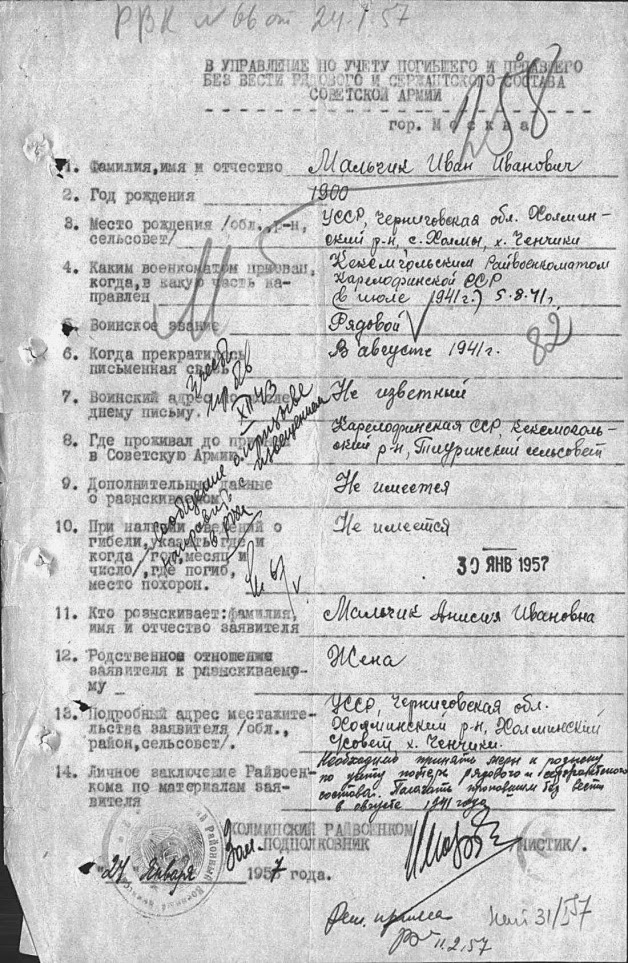 РВК № 66 от 24.1.57
В УПРАВЛЕНИЕ ПО УЧЕТУ ПОГИБШЕГО И ПРОПАВШЕГО
БЕЗ ВЕСТИ РЯДОВОГО И СЕРЖАНТСКОГО СОСТАВА
СОВЕТСКОЙ АРМИИ
гор. Москва
1. Фамилия, имя и отчество Мальчик Иван Иванович
2. Год рождения 1900
3. Место рождения /обл., р-н, УССР, Черниговская обл. Холмин-
сельсовет/ ский р-н, с. Холмы, х. Ченчики
4. Каким военкоматом призван, Кексгольским Райвоенкоматом
когда, в какую часть на- Карелофинской ССР
правлен (в июле 1941г.) 5.8.41г.
5. Воинское звание Рядовой
82
6. Когда прекратилась В августе 1941г.
письменная связь
7. Воинский адрес по послед- Не известный
днему письму.
8. Где проживал до призыва Карелофинская ССР,
в Советскую Армию р-н, Тиуринский сельсовет
9. Дополнительные данные Не имеется
о разыскиваемом
10. При наличии сведений о Не имеется
гибели, указать где и
когда год, месяц и
число, где погиб,
место похорон.
30 ЯНВ 1957
11. Кто розыскивает: фамилия, Мальчик Анисия Ивановна
имя и отчество заявителя
12. Родственное отношение Жена
заявителя к разыскиваемо-
му
13. Подробный адрес местажите- УССР, Черниговская обл.
льства заявителя /обл., Холминский р-н, Холминский
район, сельсовет/. с/совет, х. Ченчики.
14. Личное заключение Райвоен- Необходимо принять меры к розыску
кома по материалам зая- по учету потерь рядового и сержантского
вителя состава. Полагать пропавшим без вести
в августе 1941 года
ХОЛМИНСКИЙ РАЙВОЕНКОМ
Зам. ПОДПОЛКОВНИК /ЛИСТИК/.
"24" Января 1957 года.
31/I 57
11.2.57